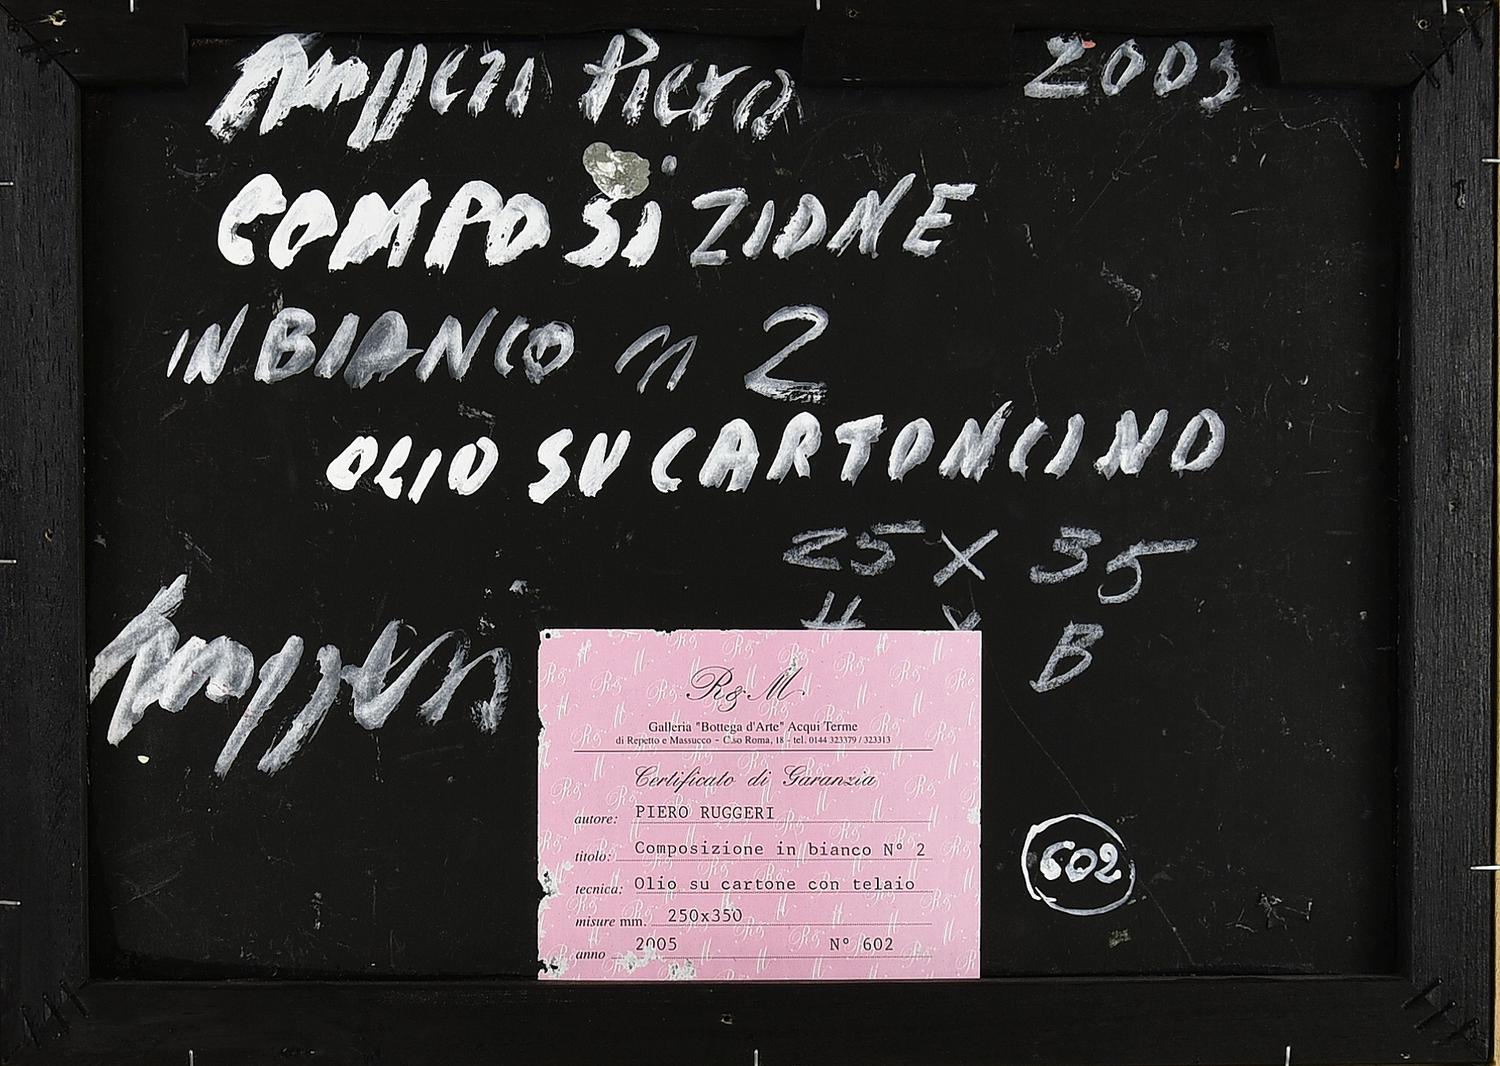 Ruggeri Piero 2005
COMPOSIZIONE
IN BIANCO n 2
OLIO SU CARTONCINO
25 X 35
B
Ruggeri
R&M
Galleria "Bottega d'Arte" Acqui Terme
di Repetto e Massucco - C.so Roma, 18 - tel. 0144 323379 / 323313
Certificato di Garanzia
autore: PIERO RUGGERI
titolo: Composizione in bianco N° 2
tecnica: Olio su cartone con telaio
misure mm. 250x350
anno 2005 N° 602
602